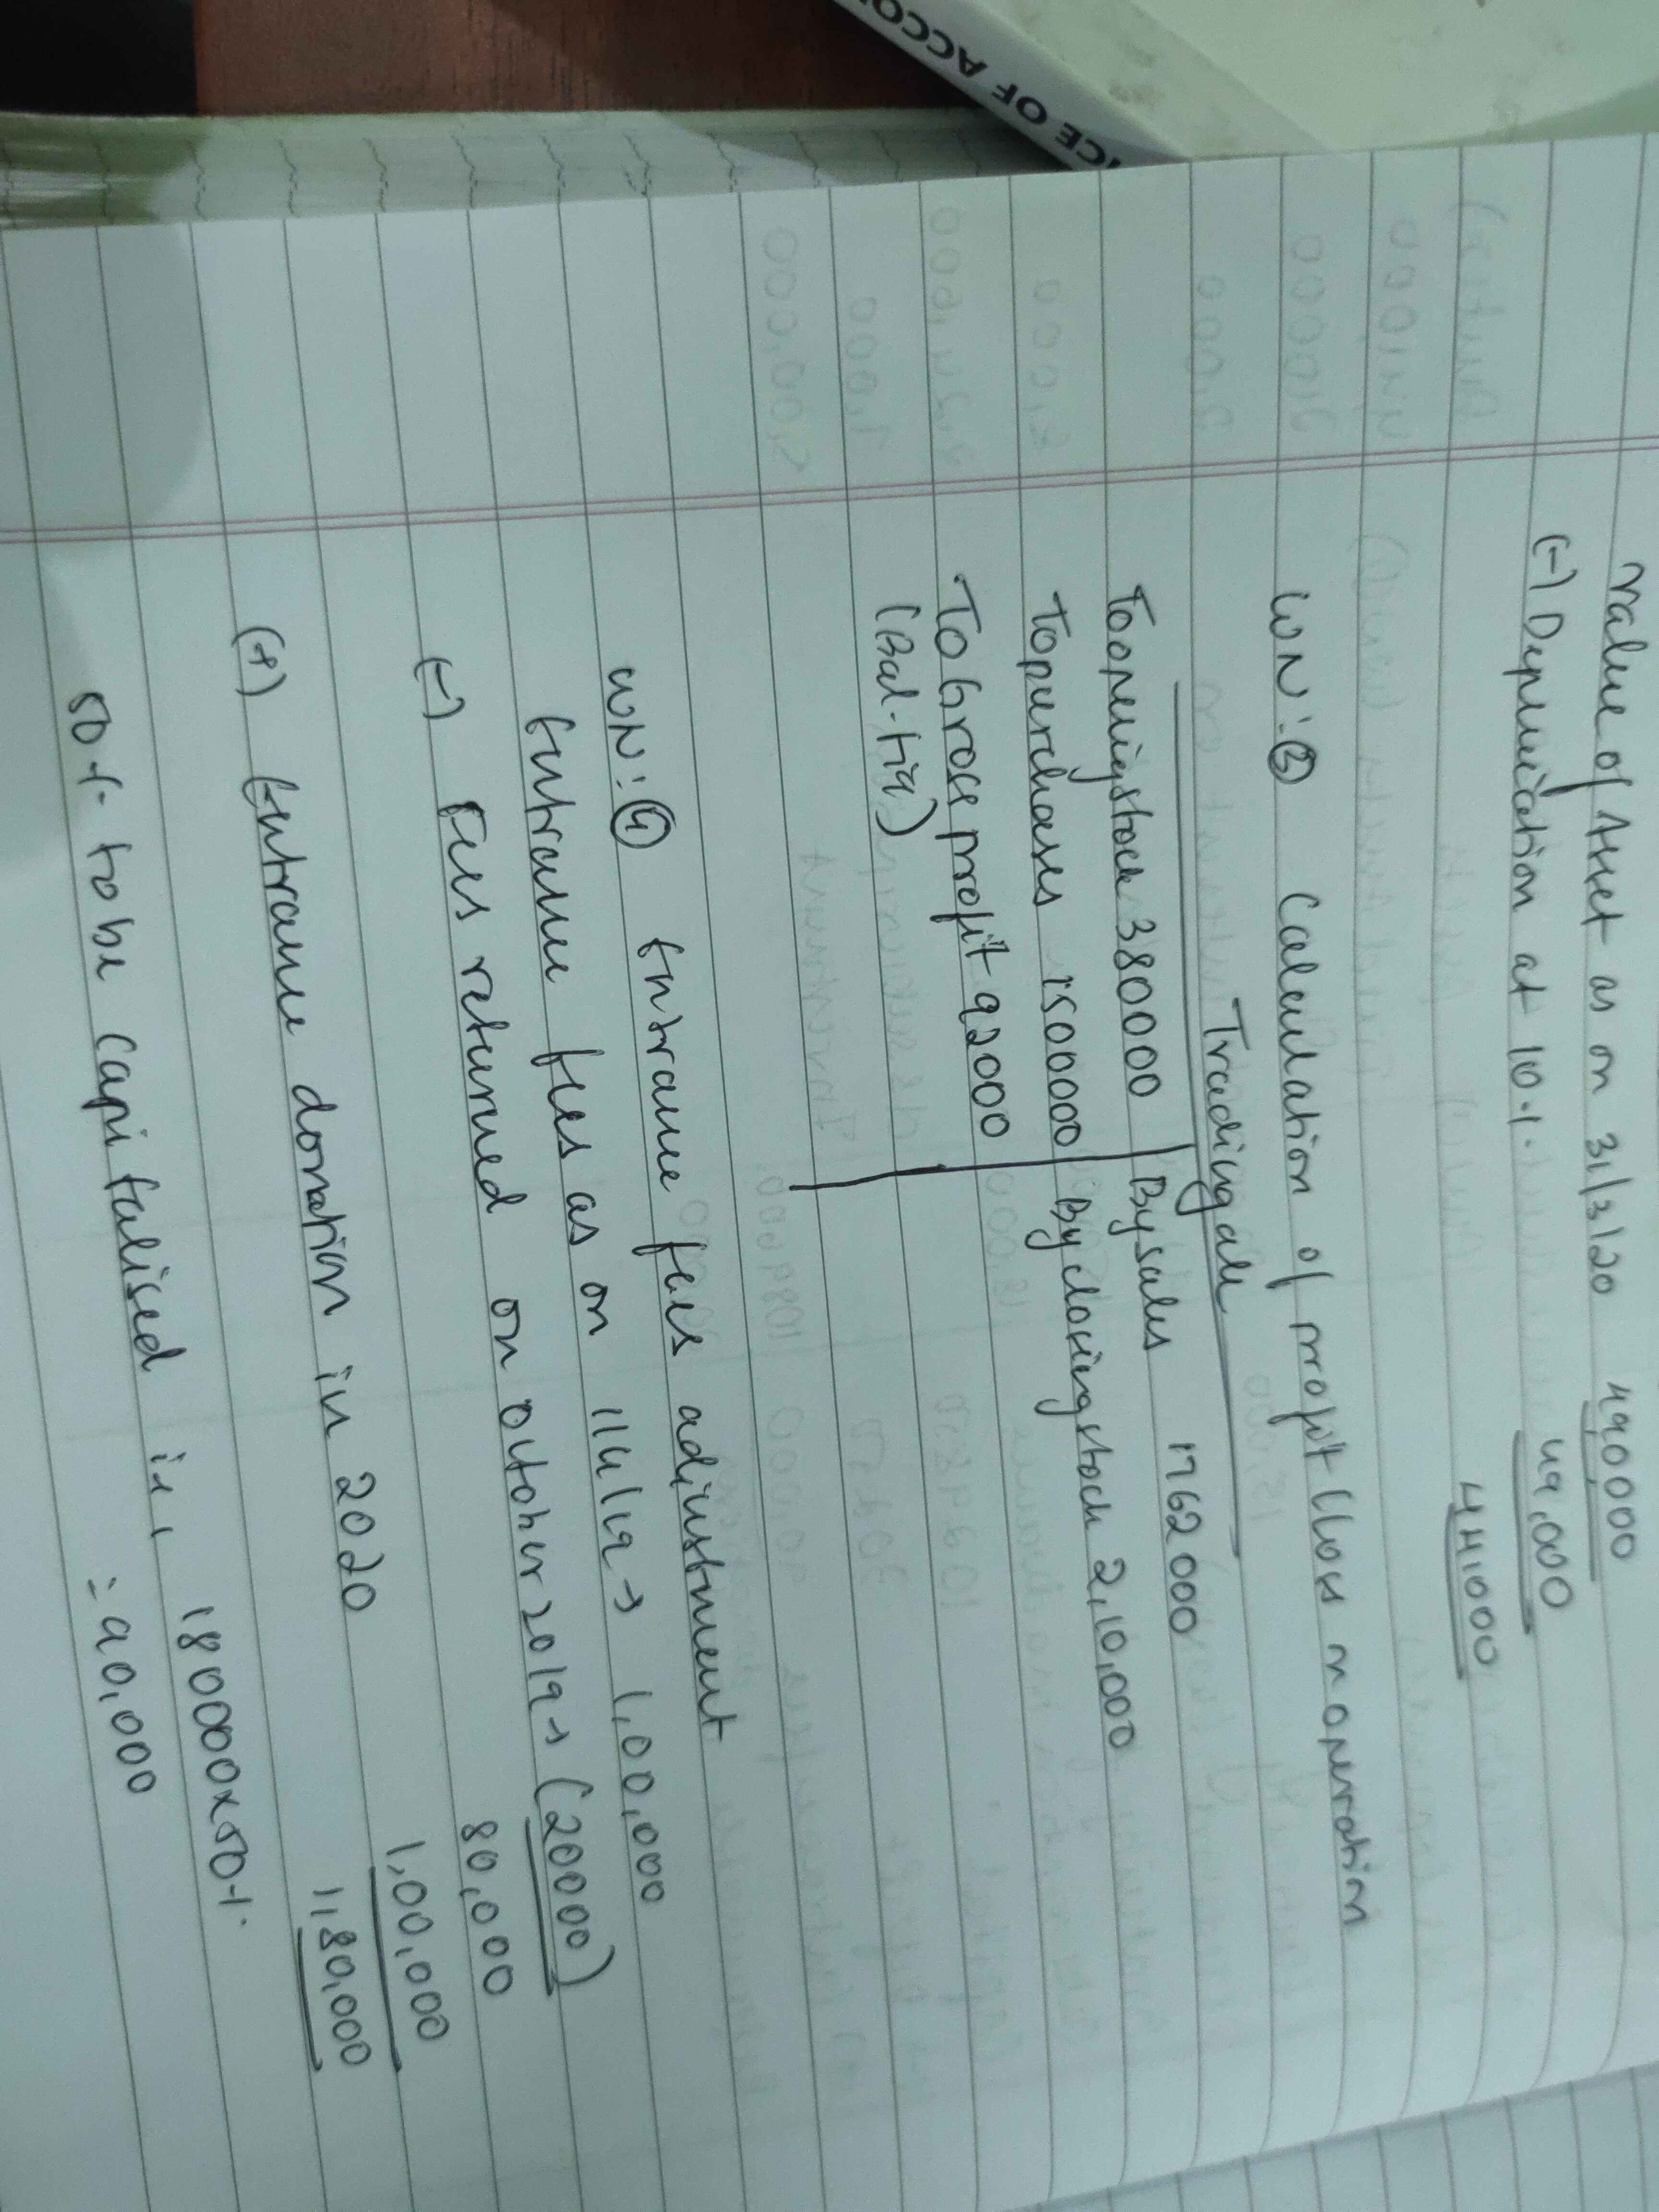 ICE OF ACCO
Value of Asset as on 31/3/20 490000
(-) Depreciation at 10%. 49,000
441000
WN:③ Calculation of profit / loss n operation
Trading a/c
To opening stock 380000 By sales 1762000
To purchases 1500000 By closing stock 2,10,000
To Gross profit 92000
(Bal. fig)
WN:④ Entrance fees adjustment
Entrance fees as on 1/4/19 → 1,00,000
(-) Fees returned on october 2019 → (20000)
80,000
(+) Entrance donation in 2020 1,00,000
1,80,000
50%. to be capitalised i.e, 180000x50%.
= 90,000